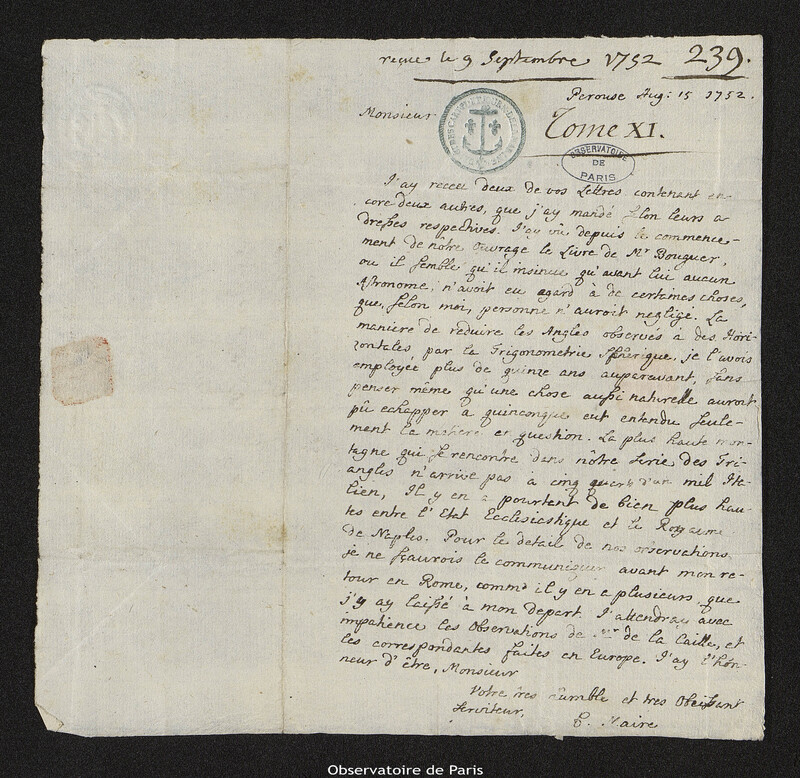 reçue le 9 Septembre 1752 239.
Perouse Aug: 15 1752.
Monsieur
Tome XI.
OBSERVATOIRE
DE
PARIS
J'ay receu deux de vos Lettres contenant en-
core deux autres, que j'ay mandé selon leurs a
dresses respectives. J'ay vû depuis le commence-
ment de nôtre ouvrage le Livre de Mr Bouguer,
ou il semble qu'il insinue qu'avant lui aucun
Astronome, n'avoit eu agard à de certaines choses,
que, selon moi, personne n'auroit negligé. La
maniere de reduire les Angles observés a des Hori-
zontales par la Trigonometrie Sphèrique, je l'avois
employée plus de quinze ans auparavant, sans
penser même qu'une chose aussi naturelle auroit
pû echapper a quinconque eut entendu seule-
ment la matiere en question. La plus haute mon-
tagne qui se rencontre dans nôtre serie des Tri-
angles n'arrive pas a cinq quarts d'un mil Ita-
lien, Il y en a pourtant de bien plus hau-
tes entre l'Etat Ecclesiastique et le Royaume
de Naples. Pour le detail de nos observations
je ne sçaurois le communiquer avant mon re-
tour en Rome, comme il y en a plusieurs, que
j'y ay laissé à mon depart. J'attendray avec
impatience les Observations de Mr de la Caille, et
les correspondantes faites en Europe. J'ay l'hon-
neur d'être, Monsieur
Votre tres humble et tres Obeissant
Serviteur,
C. Maire
Observatoire de Paris